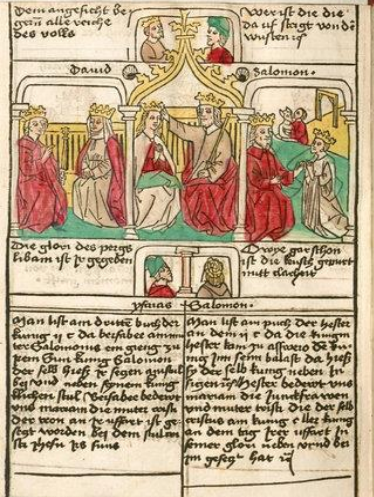 Dem angesicht
alle reiche
des volks
Wer ist die die
da uf stigt von der
wusten
David
Salomon.
Die glori des
libani ist ir gegeben
O wye gar schon
ist die keusch gepurt
mitt clarheit
ysaias
Salomon.
Man list am dritten buch der
kunig ii c da bersabe
ter Salomonis ein gieng zu
irem Sun kunig Salomon
der selb hieß ir seczen ain stul
bey und neben seinem kung
klichen stul Bersabee bedewt
uns mariam die muter
der tron an ir uffart ist ge-
seczt worden bei dem stul
Man list am puch der hester
an dem ii c da die kungin
hester kam zu asswero dem ku-
nig Im seim balast da hieß
sy der selb kunig neben in
siczen Hester bedewt uns
mariam die Junckfrawen
und muter cristi die der selb
cristus am kunig aller kung
an dem tag irer uffart in
seiner glori neben und bei
im geseczt hat